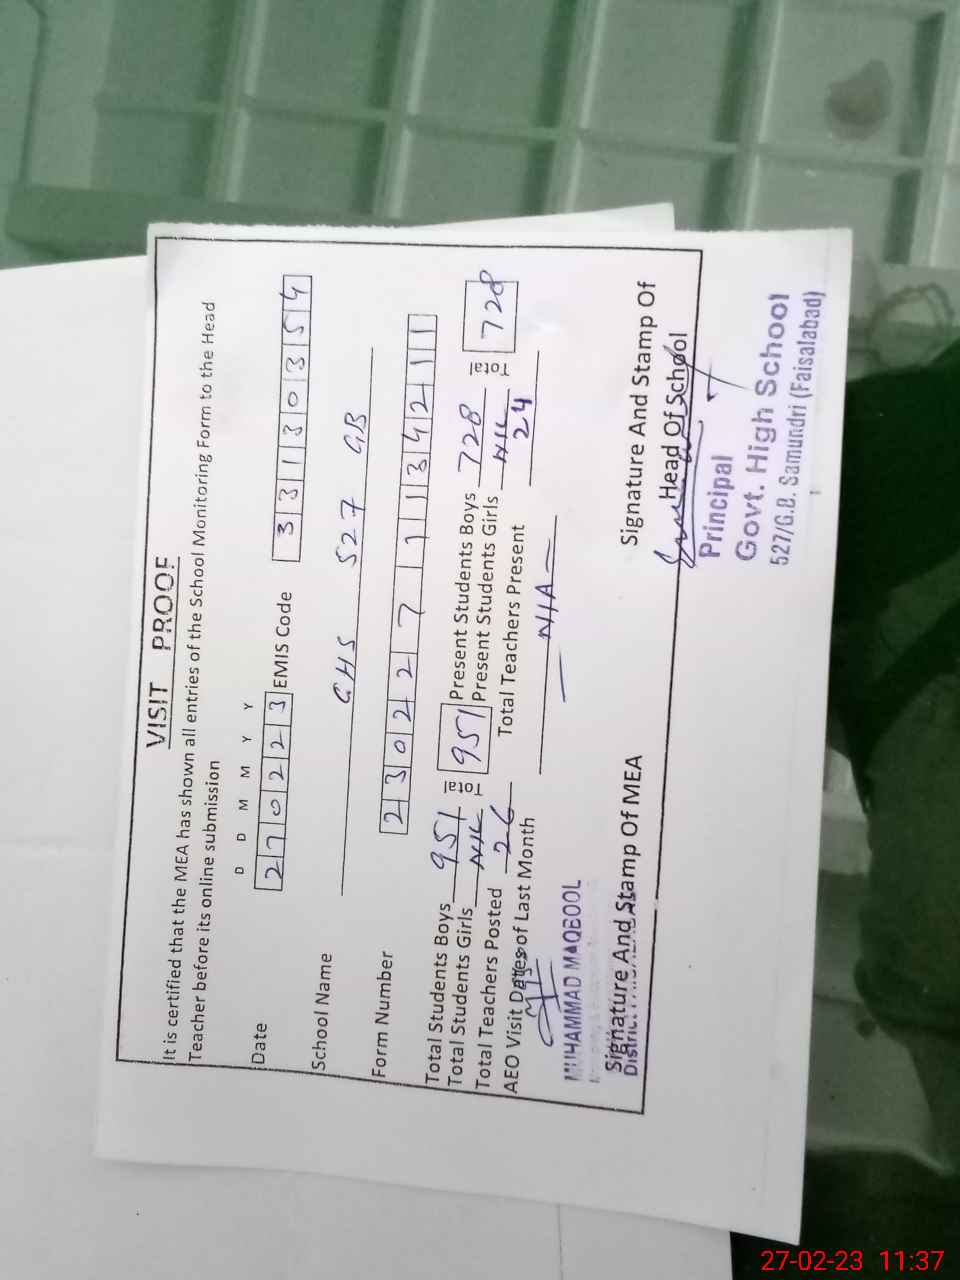 VISIT PROOF
It is certified that the MEA has shown all entries of the School Monitoring Form to the Head
Teacher before its online submission
D D M M Y Y
Date 270223 EMIS Code 33130354
School Name GHS 527 GB
Form Number 23022771134211
Total Students Boys 951 Total 951 Present Students Boys 728 Total 728
Total Students Girls NIL Present Students Girls NIL
Total Teachers Posted 26 Total Teachers Present 24
AEO Visit Dates of Last Month — N/A —
MUHAMMAD MAQBOOL
Signature And Stamp Of MEA
District
Signature And Stamp Of
Head Of School
Principal
Govt. High School
527/G.B. Samundri (Faisalabad)
27-02-23 11:37